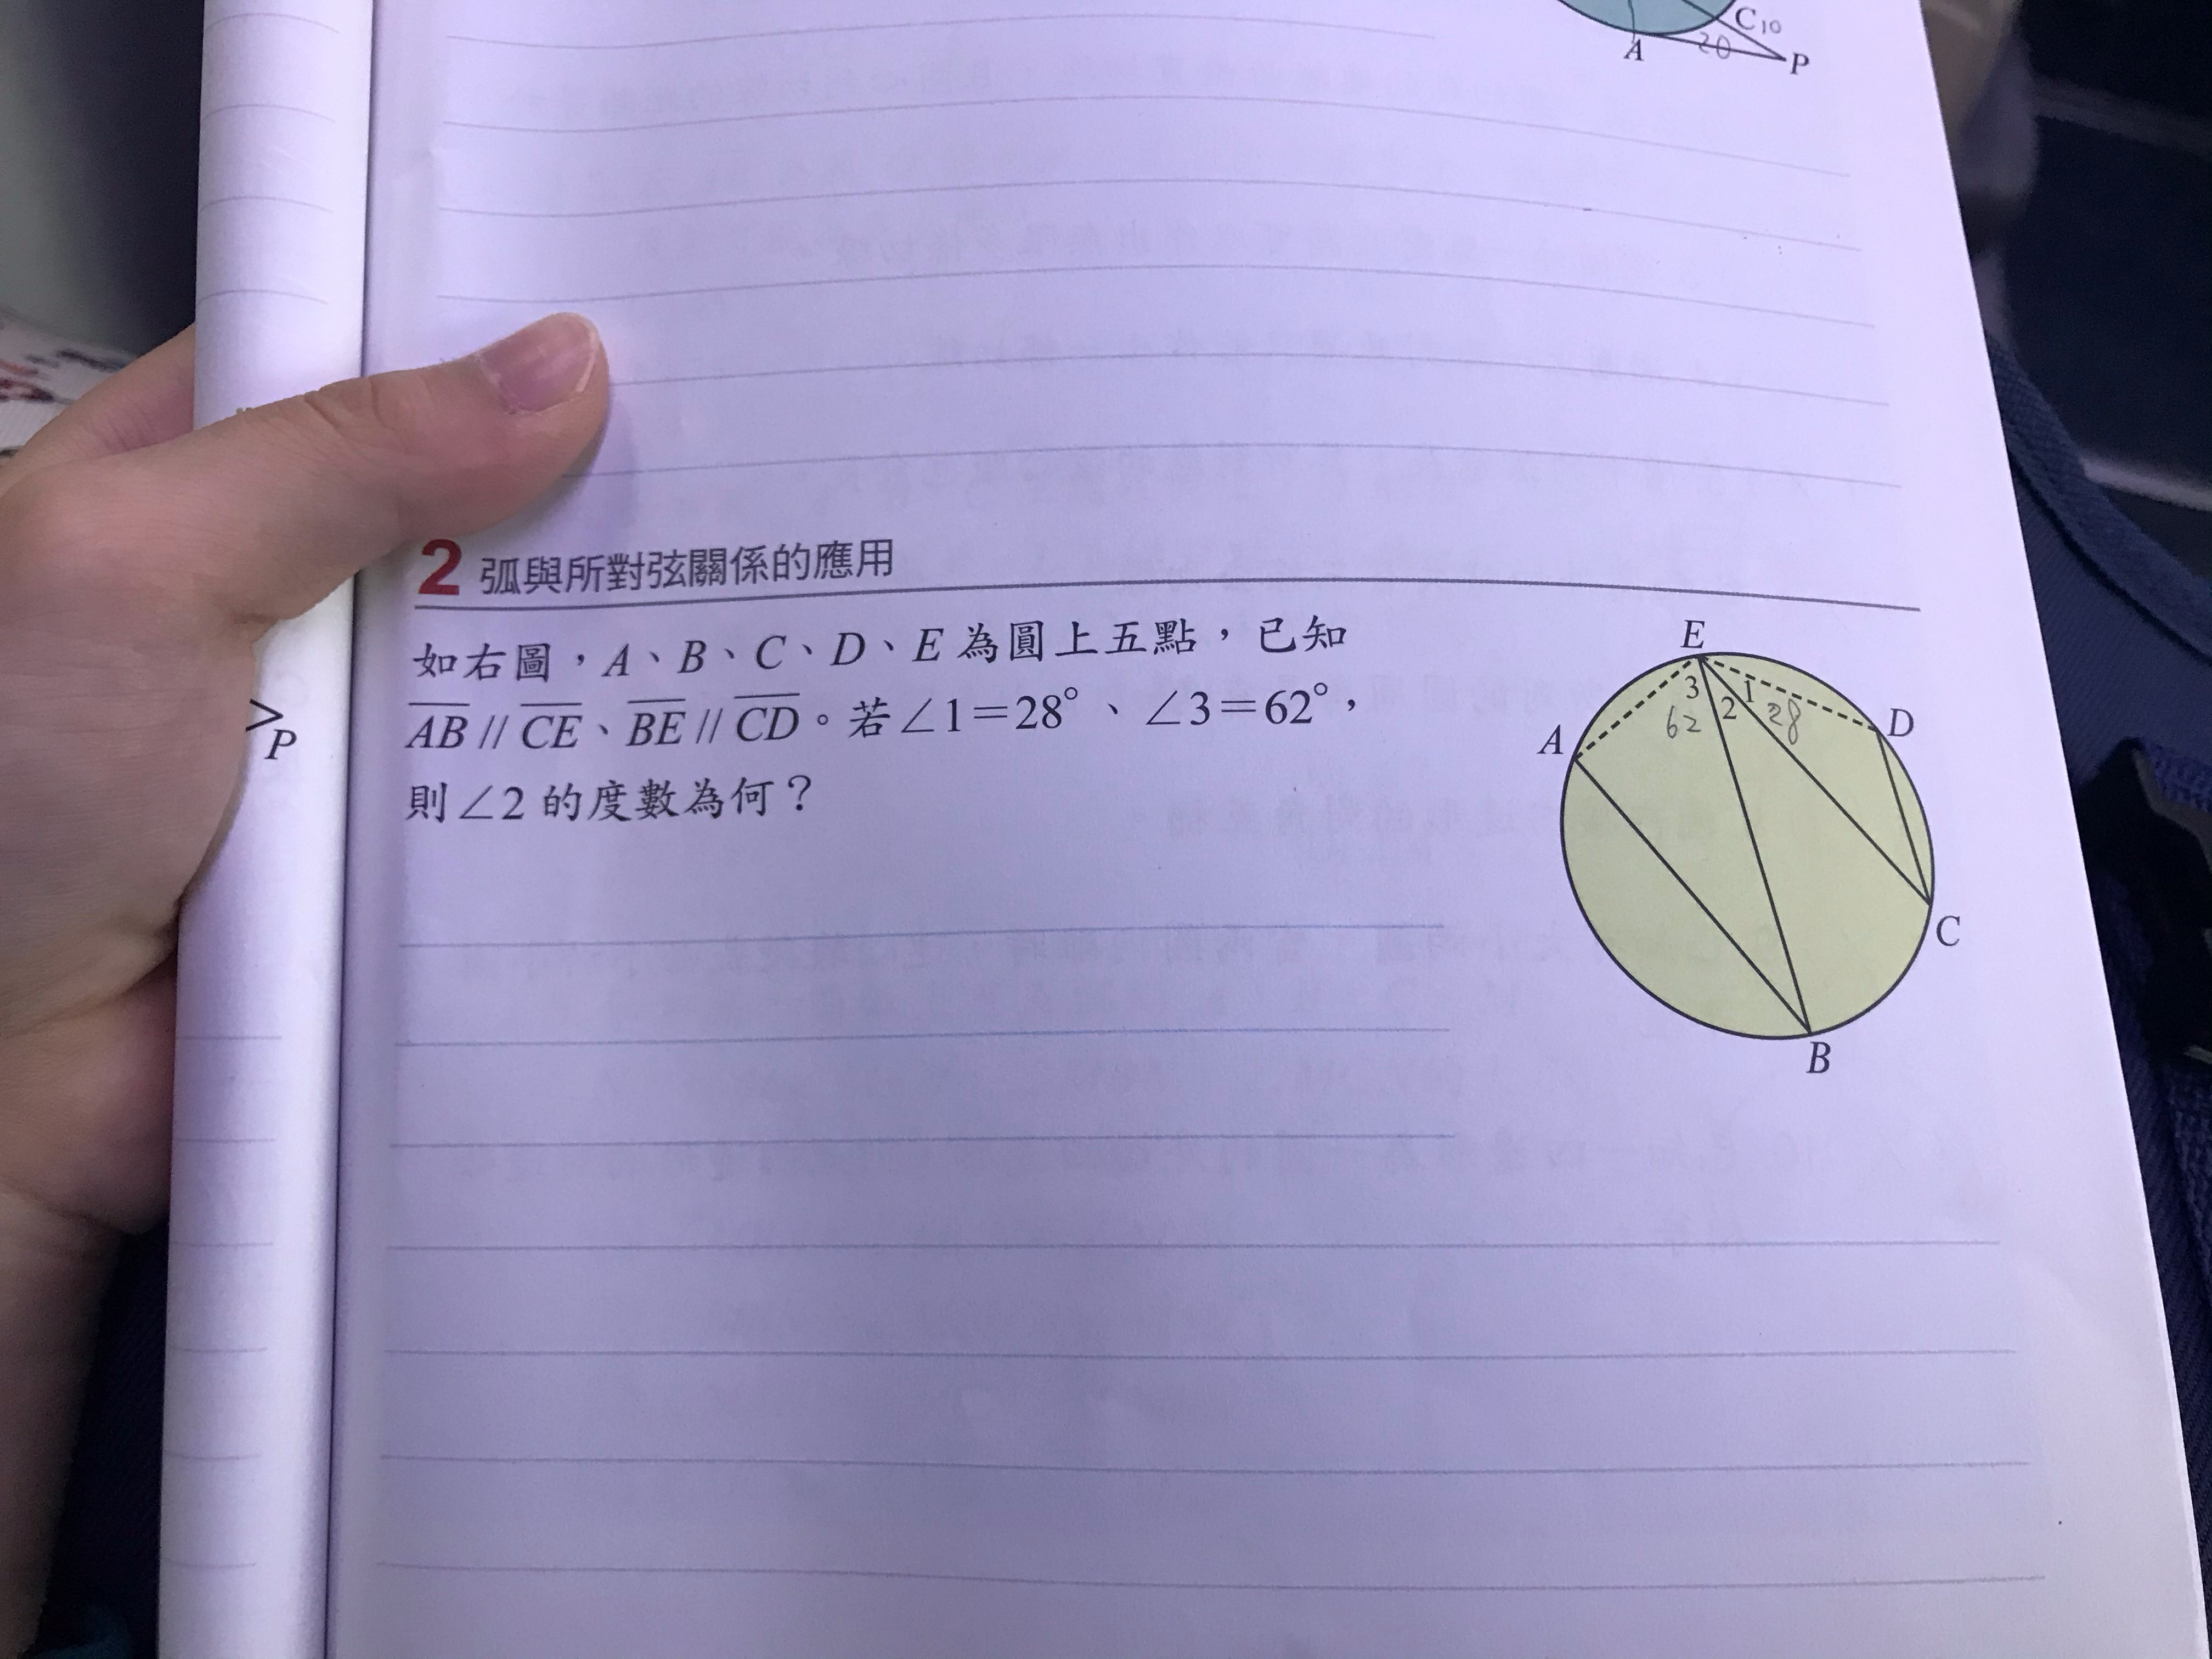 C 10
20
A
P
2 弧與所對弦關係的應用
如右圖，A、B、C、D、E為圓上五點，已知
AB // CE、BE // CD。若∠1=28°、∠3=62°，
則∠2的度數為何？
E
3 2 1
62 28
D
A
C
B
P